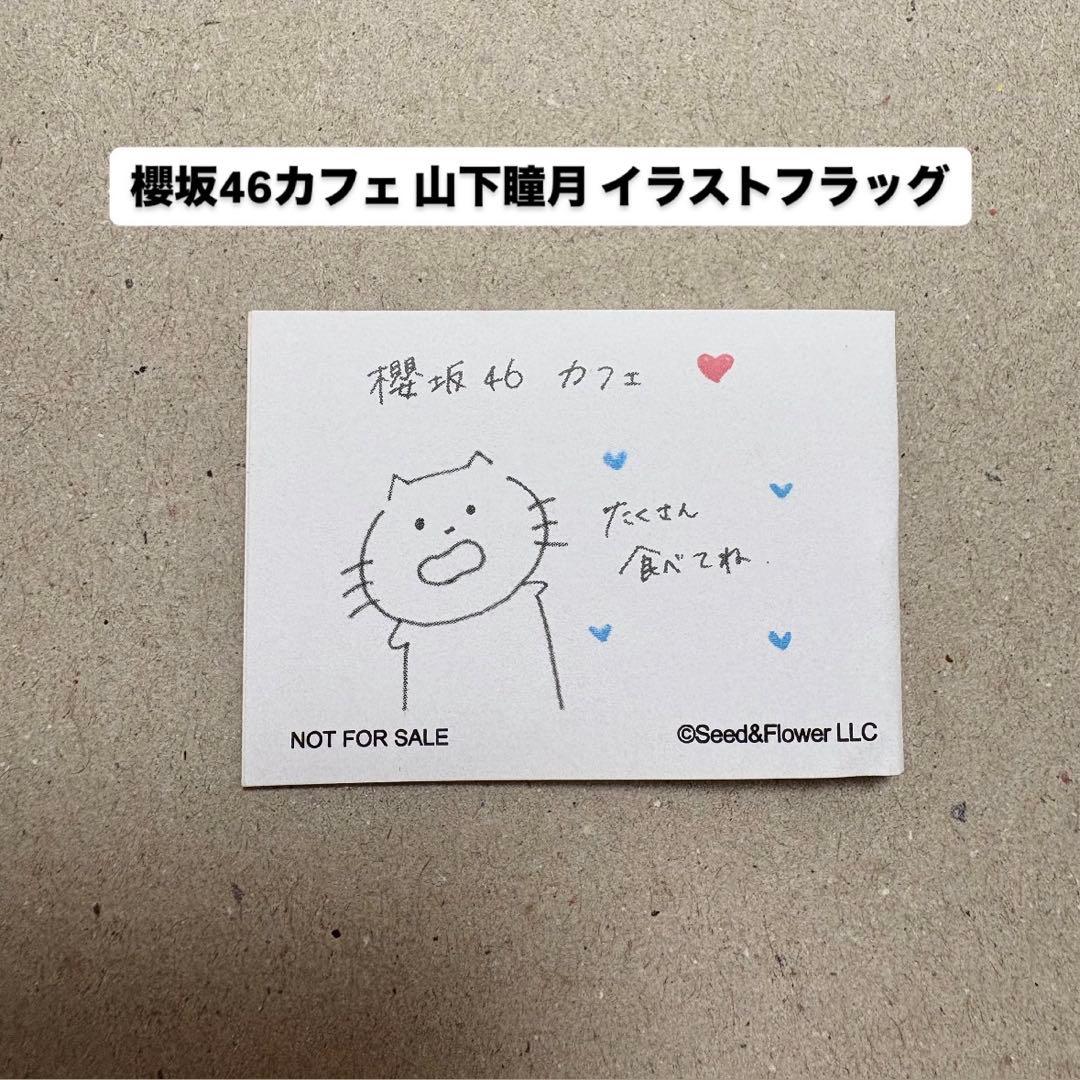 櫻坂46カフェ 山下瞳月 イラストフラッグ
櫻坂46 カフェ
たくさん
食べてね.
NOT FOR SALE
©Seed&Flower LLC